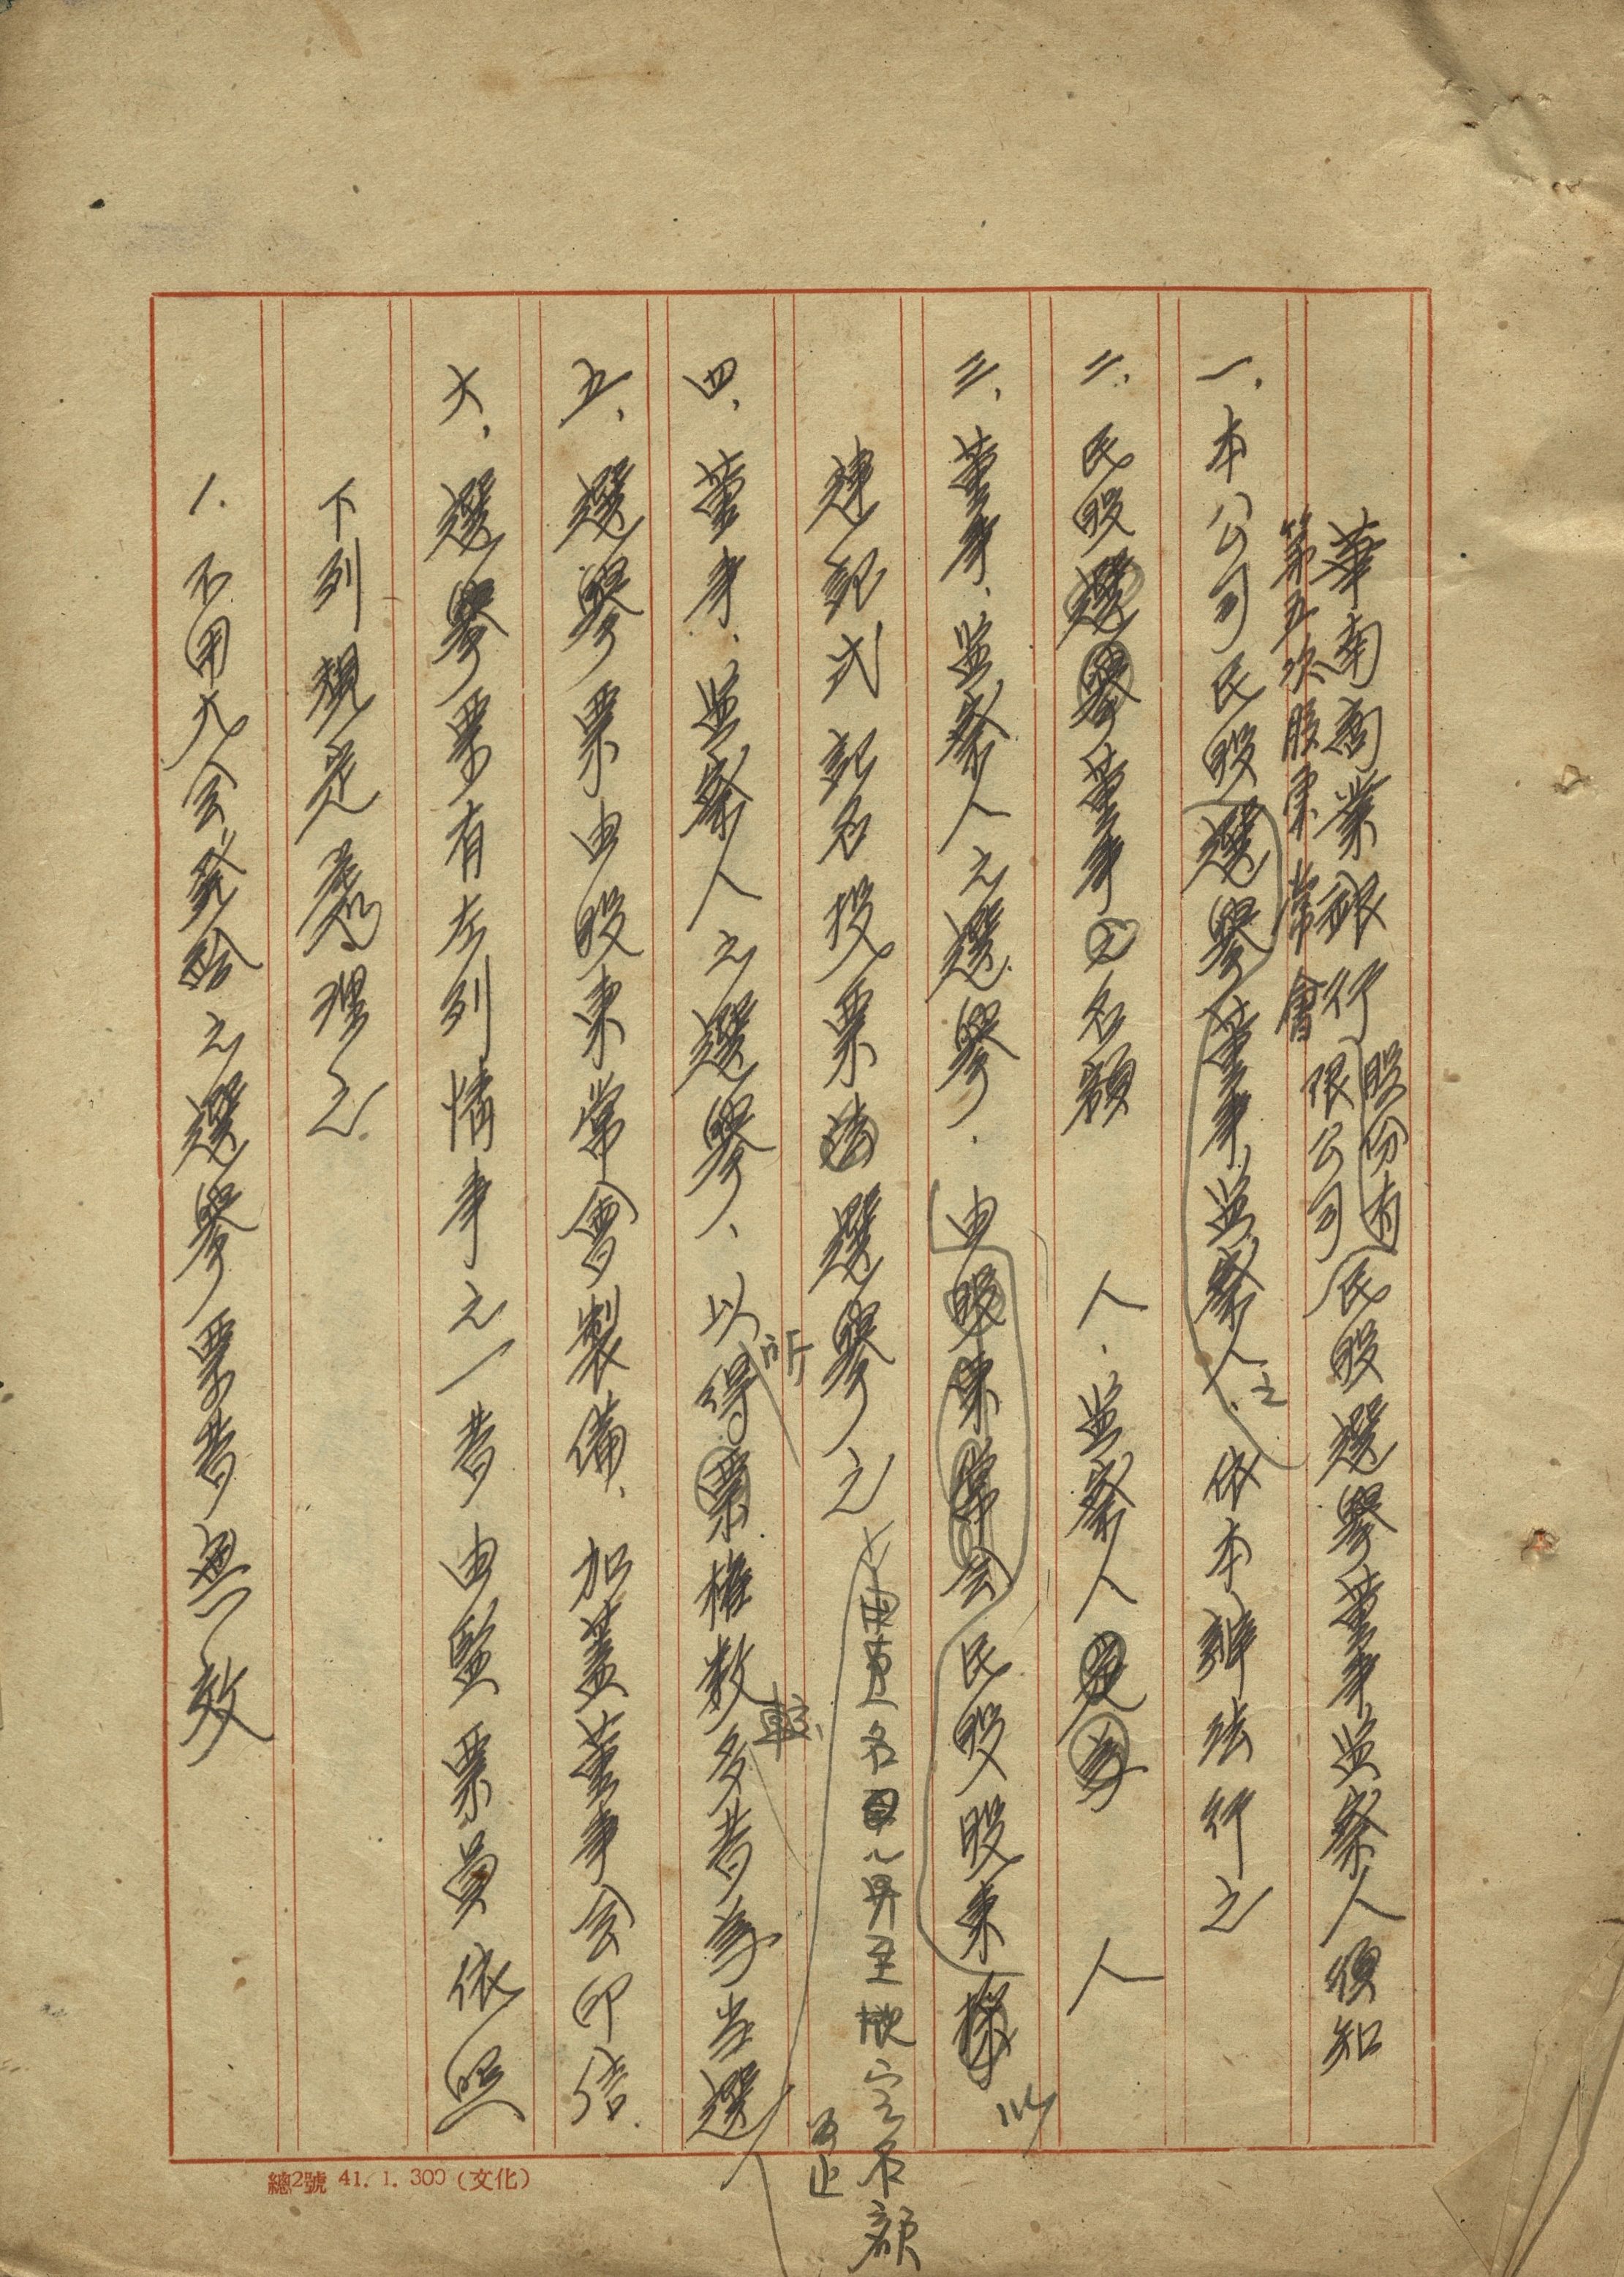 華南商業銀行股份有限公司民股選舉董事監察人須知
第五次股東常會
一、本公司民股選舉董事、監察人之依本辦法行之
二、民股選舉董事之名額 人、監察人 人
三、董事、監察人之選舉、由股東常会民股股東採以
連記式記名投票法選舉之
名單 至規定名額
為止
四、董事、監察人之選舉、以所得票權數較多者為当選
五、選舉票由股東常會製備、加蓋董事会印信
六、選舉票有左列情事之一者由監票員依照
下列規定處理之
1. 不用大会發給之選舉票者無效
總2號 41.1.300(文化)